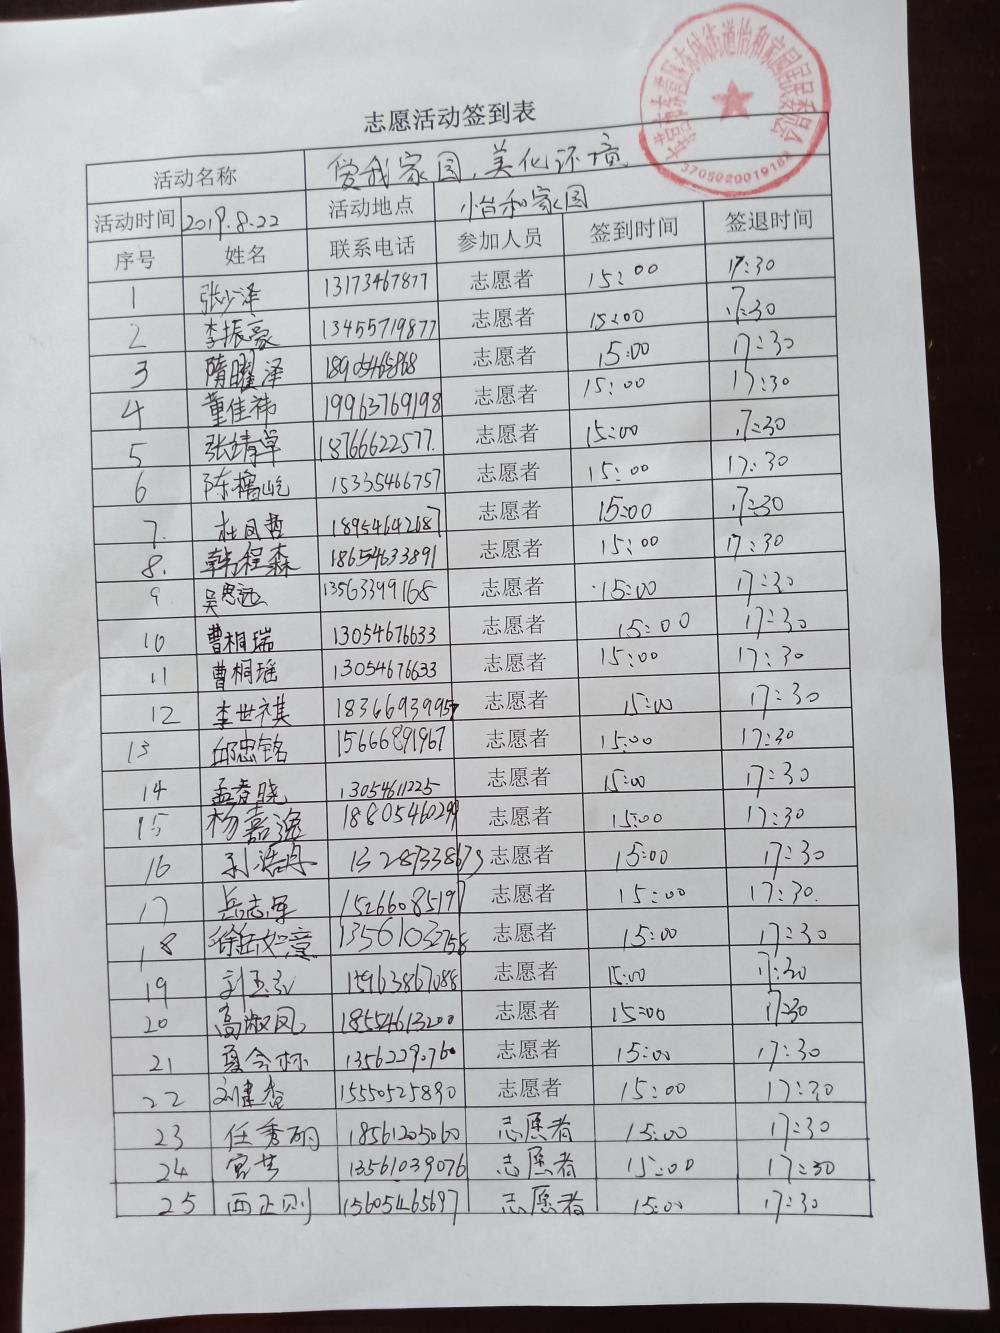 志愿活动签到表
活动名称 爱我家园,美化环境
活动时间 2019.8.22 活动地点 怡和家园
序号 姓名 联系电话 参加人员 签到时间 签退时间
1 张少泽 13173467877 志愿者 15:00 17:30
2 李振豪 13455719877 志愿者 15:00 17:30
3 隋曜泽 18905465868 志愿者 15:00 17:30
4 董佳祎 19963769198 志愿者 15:00 17:30
5 张靖卓 18766622577. 志愿者 15:00 17:30
6 陈橹屹 15335466757 志愿者 15:00 17:30
7. 杜风哲 18954642687 志愿者 15:00 17:30
8. 韩程森 18654633891 志愿者 15:00 17:30
9 吴思远 13563399168 志愿者 15:00 17:30
10 曹桐瑞 13054676633 志愿者 15:00 17:30
11 曹桐瑶 13054676633 志愿者 15:00 17:30
12 李世祺 18366939957 志愿者 15:00 17:30
13 邱忠铭 15666891967 志愿者 15:00 17:30
14 孟春晓 13054611225 志愿者 15:00 17:30
15 杨嘉逸 18805460299 志愿者 15:00 17:30
16 刘浩冉 13287338673 志愿者 15:00 17:30
17 岳志军 15266085197 志愿者 15:00 17:30.
18 徐岳如意 13561032758 志愿者 15:00 17:30
19 刘玉红 15963867088 志愿者 15:00 17:30
20 高淑凤 18554613200 志愿者 15:00 17:30
21 夏令林 13562290760 志愿者 15:00 17:30
22 刘建香 15550525890 志愿者 15:00 17:30
23 任秀丽 18561205060 志愿者 15:00 17:30
24 宫芸 13561039076 志愿者 15:00 17:30
25 西正则 15605465697 志愿者 15:00 17:30
3705020019162